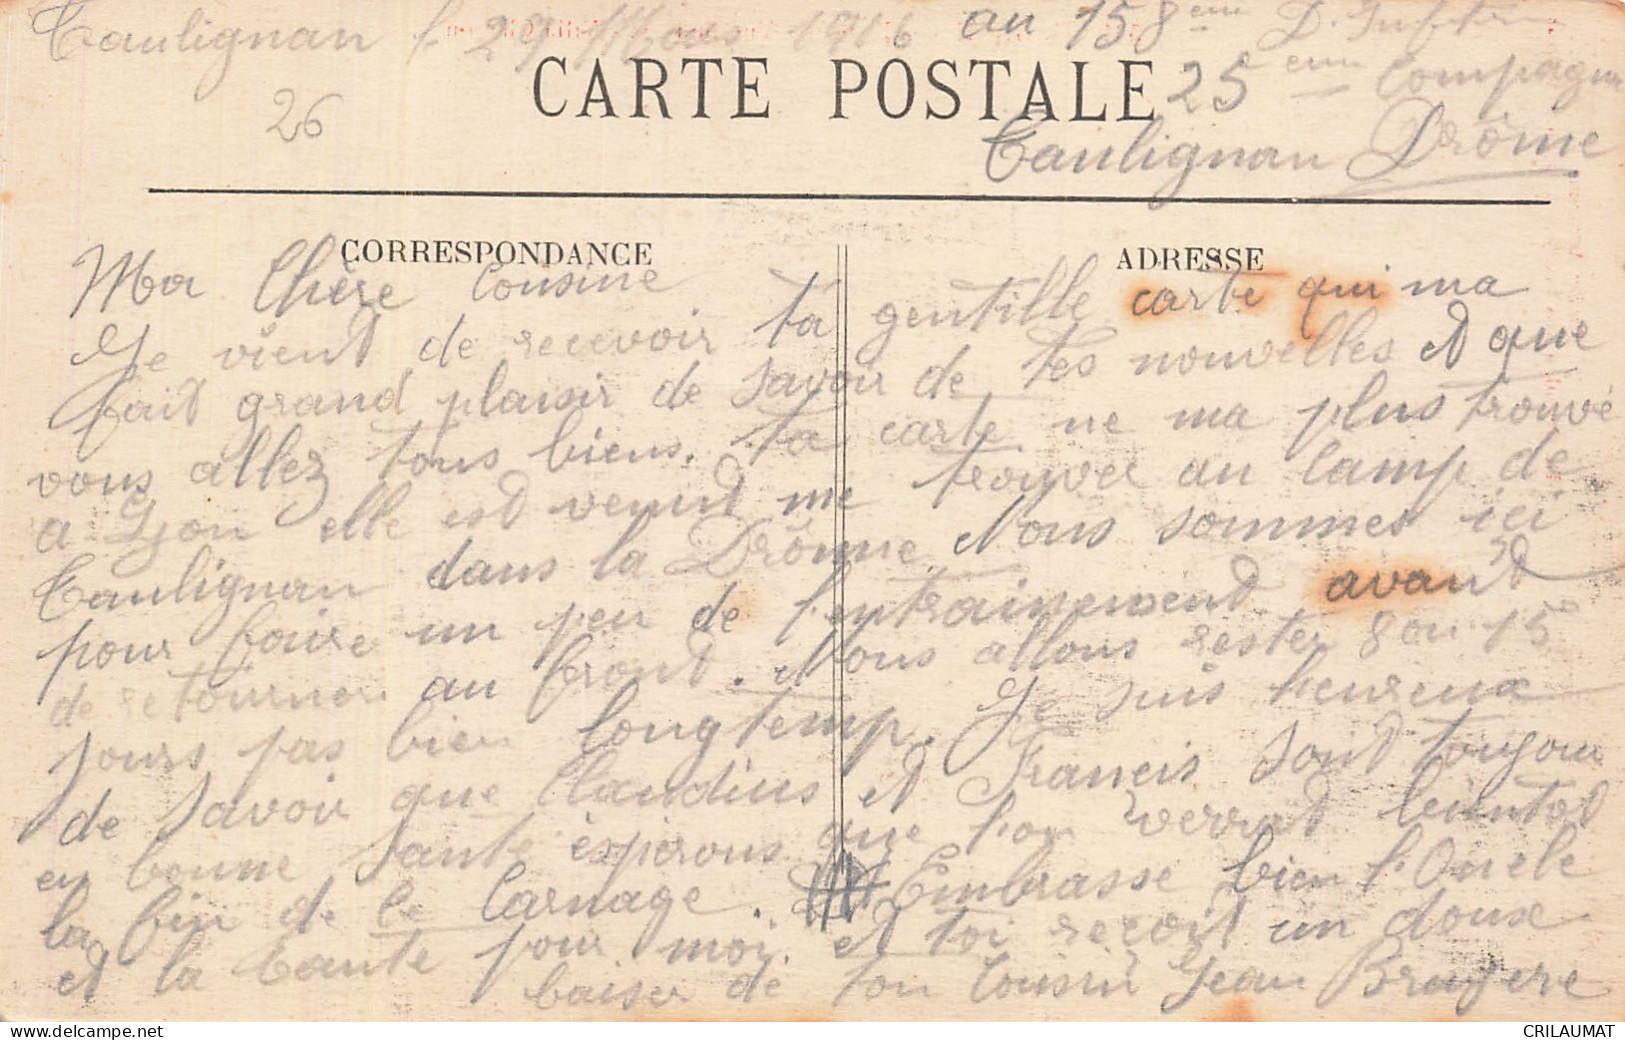 Taulignan l 29 Mars 1916 au 158eme D. Inft
25eme Compagnie
CARTE POSTALE
26
Taulignan Drôme
CORRESPONDANCE
ADRESSE
Ma Chère Cousine
Je vient de recevoir ta gentille carte qui ma
fait grand plaisir de savoir de tes nouvelles et que
vous allez tous biens. ta carte ne ma plus trouvé
a Lyon elle est venut me trouver au camp de
Taulignan dans la Drôme. Nous sommes ici
pour faire un peu de l'entrainement avant
de retourner au front. Nous allons rester 8 ou 15
jours pas bien longtemp. Je suis heureux
de savoir que Claudius et Francis sont toujour
en bonne santé espérons que l'on verrat bientot
la fin de ce Carnage. Embrasse bien l'Oncle
et la tante pour moi. et toi reçoit un doux
baiser de ton Cousin Jean Bruyere
CRILAUMAT